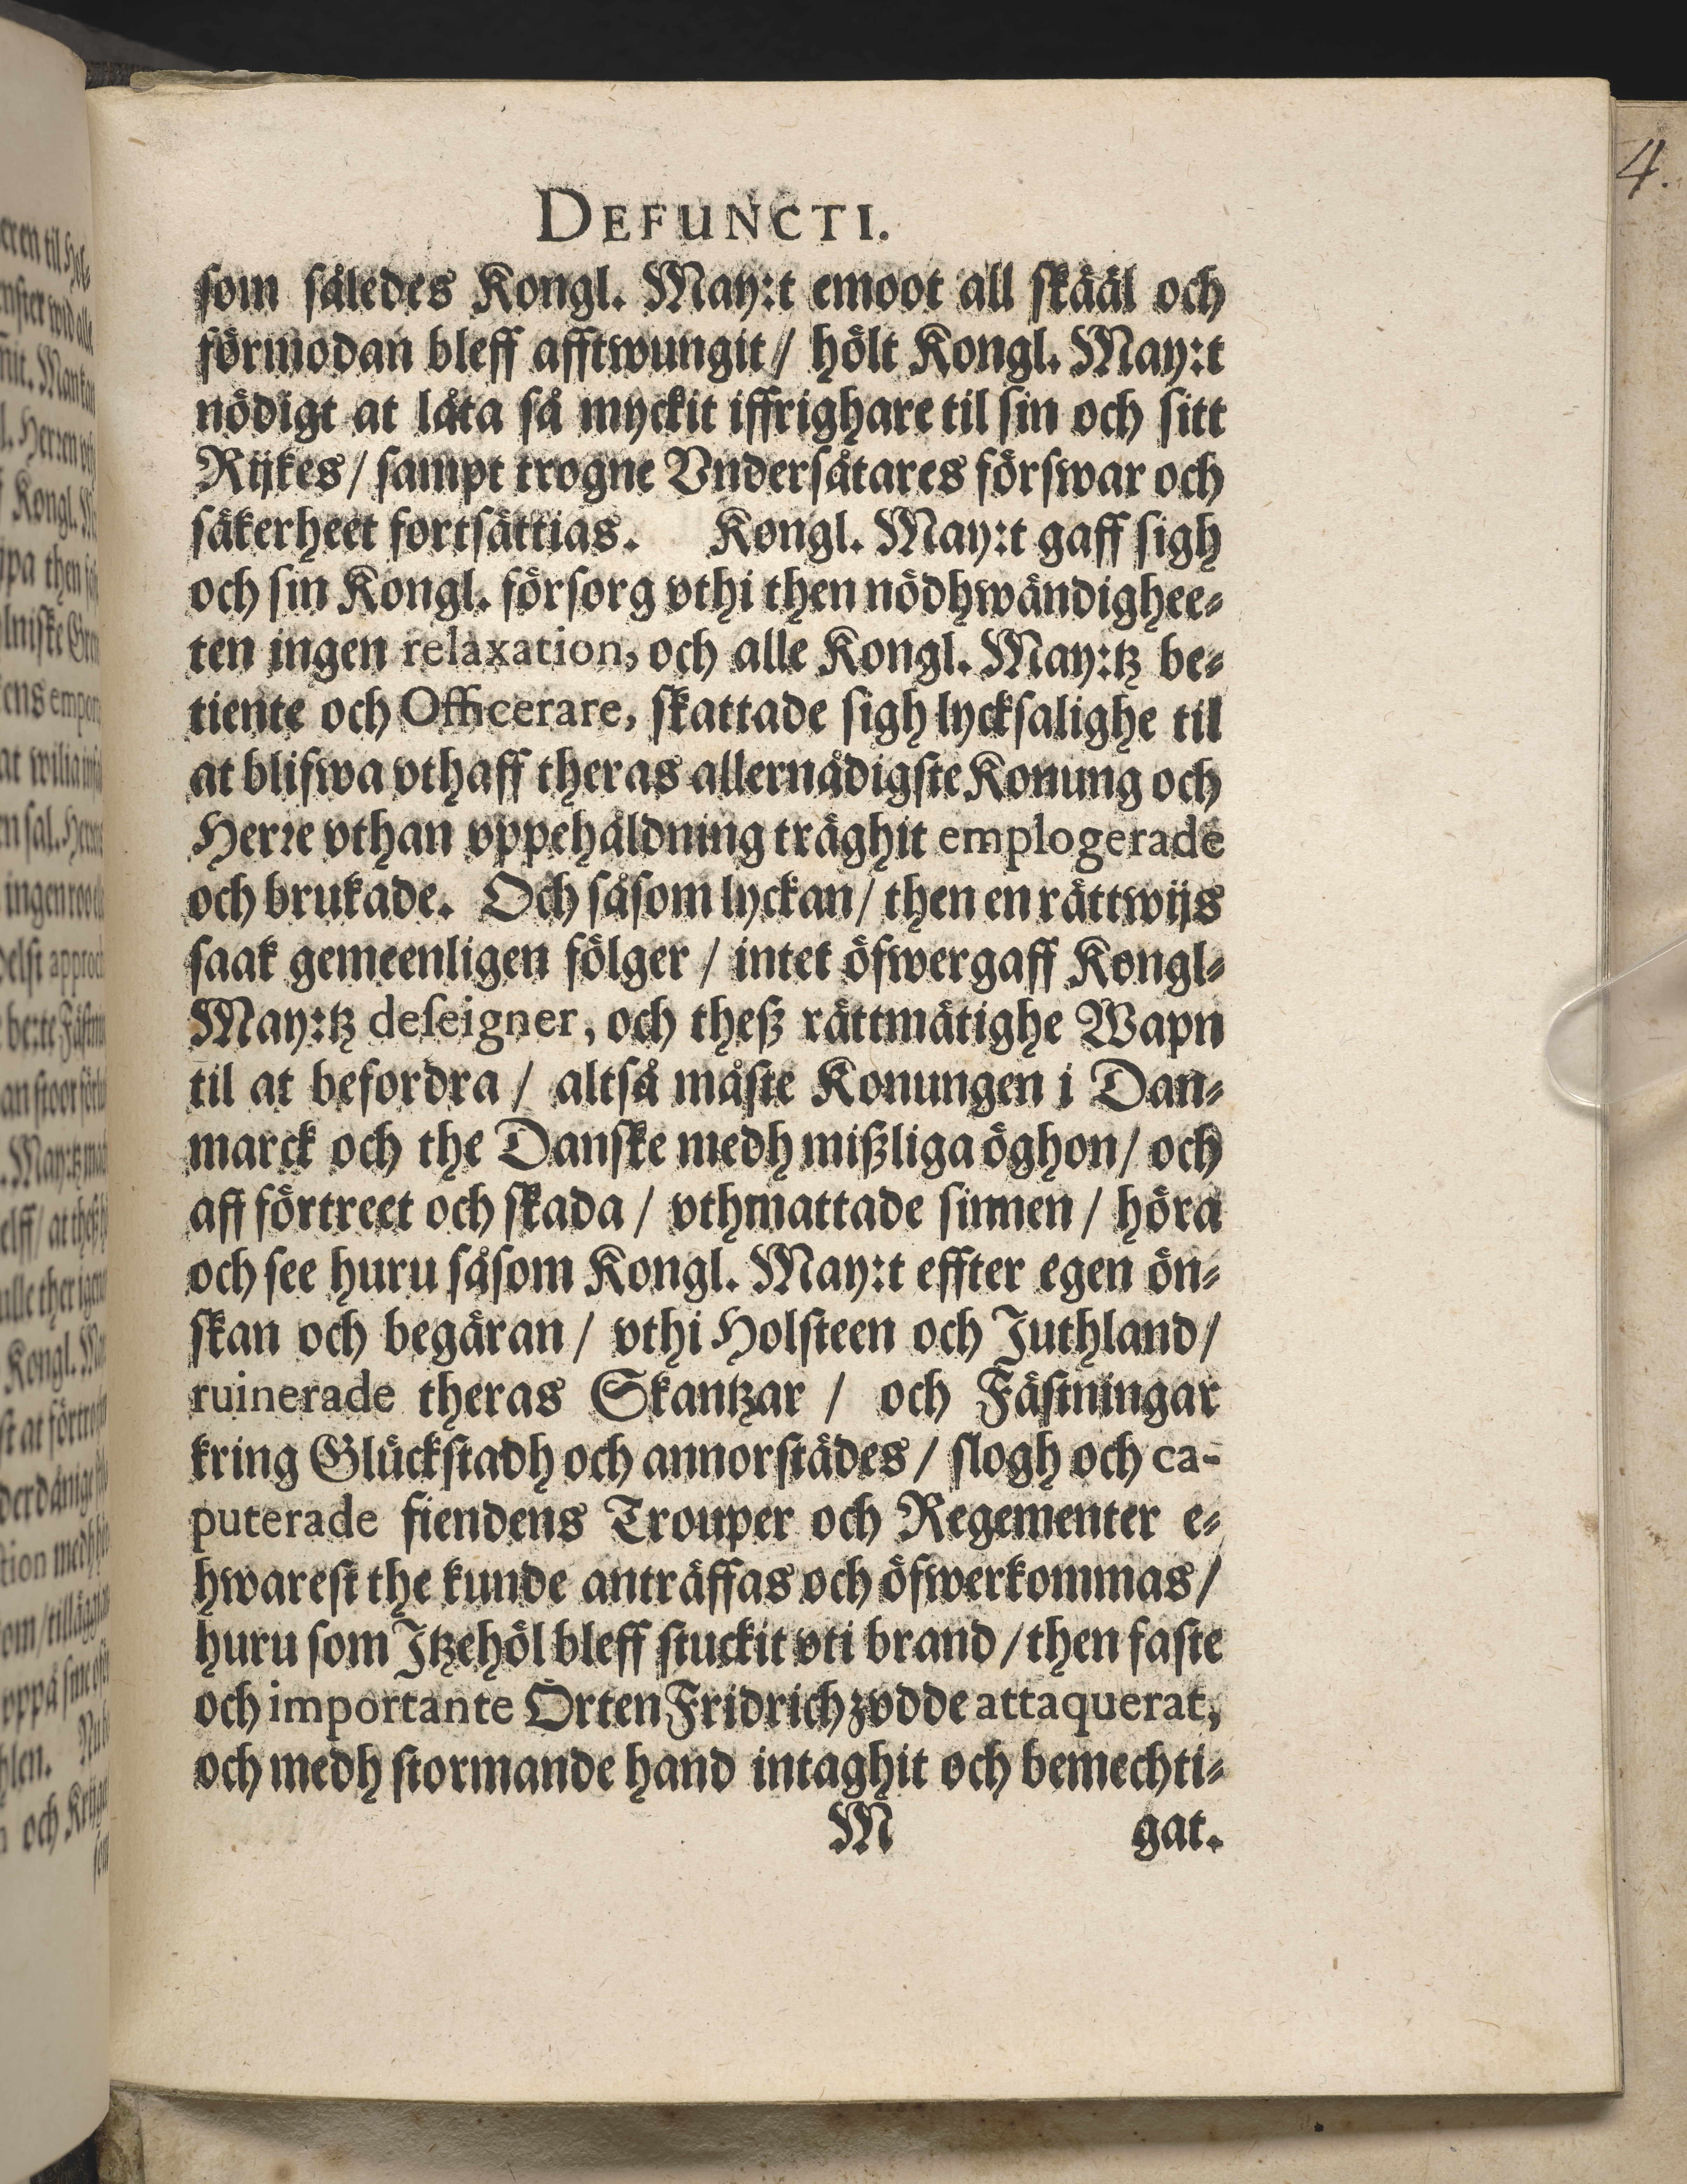 4.
DEFUNCTI.
som således Kongl. May:t emoot all skääl och
förmodan bleff afftwungit / hölt Kongl. May:t
nödigt at låta så myckit iffrighare til sin och sitt
Rijkes / sampt trogne Vndersåtares förswar och
säkerheet fortsättias. Kongl. May:t gaff sigh
och sin Kongl. försorg vthi then nödhwändighee-
ten ingen relaxation, och alle Kongl. May:tz be-
tiente och Officerare, skattade sigh lycksalighe til
at blifwa vthaff theras allernådigste Konung och
Herre vthan vppehåldning träghit emplogerade
och brukade. Och såsom lyckan / then en rättwijs
saak gemeenligen fölger / intet öfwergaff Kongl-
May:tz deseigner, och theß rättmätighe Wapn
til at befordra / altså måste Konungen i Dan-
marck och the Danske medh mißliga öghon / och
aff förtreet och skada / vthmattade sinnen / höra
och see huru såsom Kongl. May:t effter egen ön-
skan och begäran / vthi Holsteen och Juthland /
ruinerade theras Skantzar / och Fästningar
kring Glückstadh och annorstädes / slogh och ca-
puterade fiendens Trouper och Regementer e-
hwarest the kunde anträffas och öfwerkommas /
huru som Itzehöl bleff stuckit vti brand / then faste
och importante Orten Fridrichzvdde attaquerat,
och medh stormande hand intaghit och bemechti-
M gat.